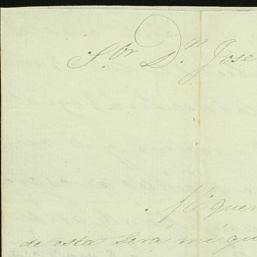 Sor Dn Jose
Mi quer
de esta será mi qu